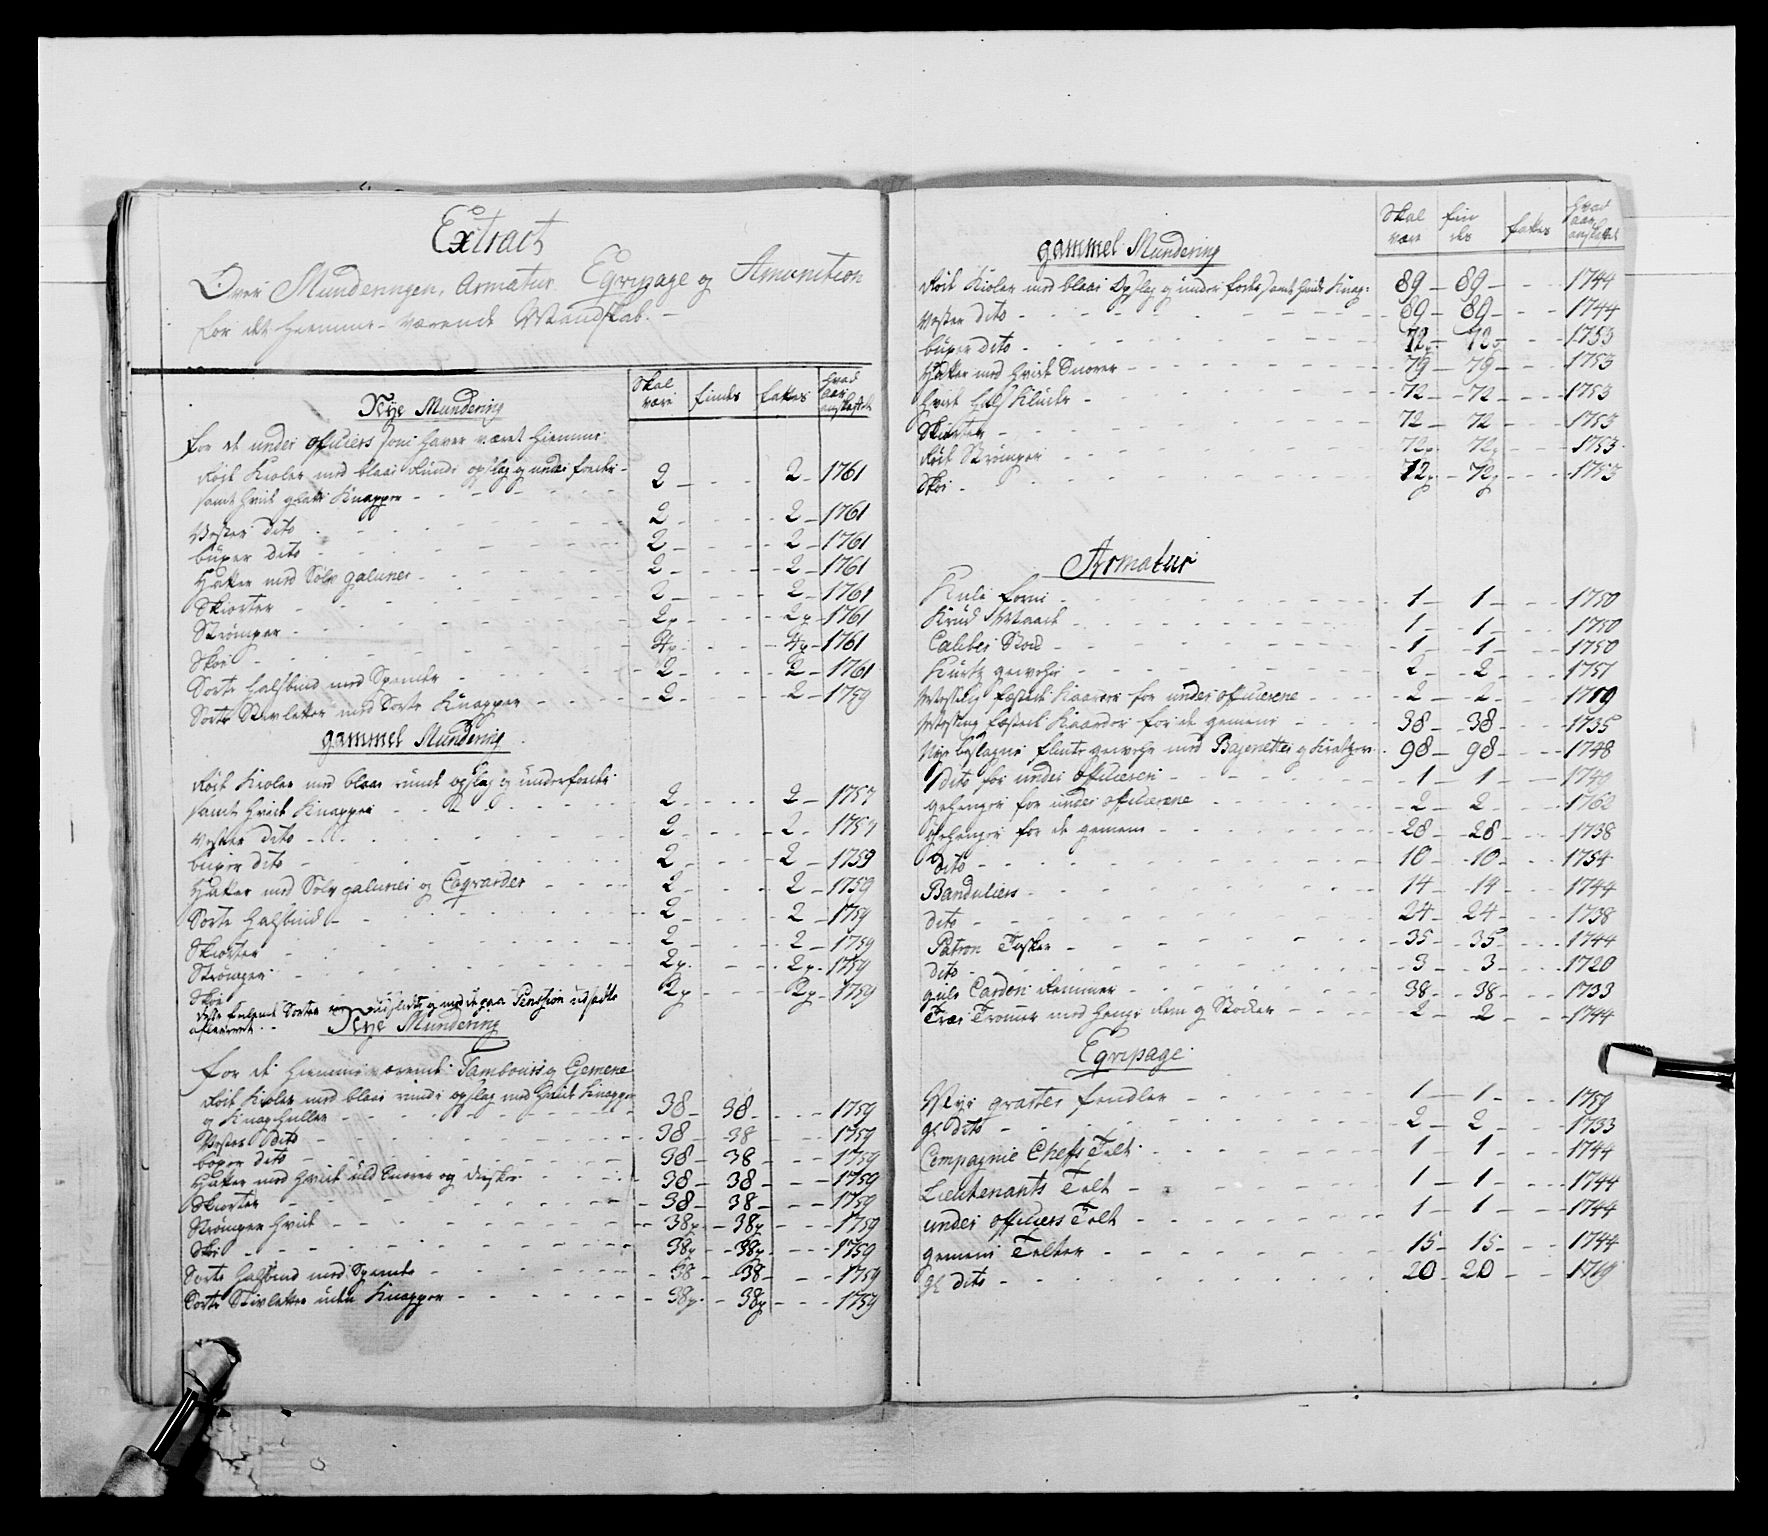 Extract
Over Munderingen, Armatur Eqvipage og Amonition
for det hiemme-værende Mandskab.
Skal være | findes | fattes | Hvad aar anskaffet
Nye Mundering
for de under officiers som haver været hiemme
Röde Kioler med blaae Runde opslag og under foeder
samt hvide glatte Knapper - 2 - - 2 - 1761
Vester dito - 2 - - 2 - 1761
buxer dito - 2 - - 2 - 1761
Hatter med Sölv galuner - 2 - - 2 - 1761
Skiorter - 2 - - 2 - 1761
Strömper - 2p - - 2p - 1761
Skoe - 4p - - 4p - 1761
Sorte Halsbind med Spender - 2 - - 2 - 1761
Sorte Stivletter med Sorte Knapper - 2 - - 2 - 1759
gammel Mundering
Röde Kioler med blaae runde opslag og underfoeder
samt hvide Knapper - 2 - - 2 - 1757
Vester dito - 2 - - 2 - 1757
buxer dito - 2 - - 2 - 1759
Hatter med Sölv galuner og Coqvarder - 2 - - 2 - 1759
Sorte Halsbind - 2 - - 2 - 1759
Skiorter - 2 - - 2 - 1759
Strömper - 2p - - 2p - 1759
Skoe - 2p - - 2p - 1759
og med de paa Pension udsatte
afleveret
Nye Mundering
for de hiemmeværende Tambours og Gemene
Röde Kioler med blaae runde opslag med Hvide Knapper
og Knap Huller - 38 - 38 - - 1759
Vester dito - 38 - 38 - - 1759
boxer dito - 38 - 38 - - 1759
Hatter med Hvide uld Snorer og duske - 38 - 38 - - 1759
Skiorter - 38 - 38 - - 1759
Strömper Hvide - 38p - 38p - - 1759
Skoe - 38p - 38p - - 1759
Sorte Halsbind med Spende - 38 - 38 - - 1759
Sorte Stivletter uden Knapper - 38p - 38p - - 1759
Skal være | fin des | fattes | Hvad aar anskaffet
gammel Mundering
Röde Kioler med blaae Opslag og under foeder samt hvide Knap: 89 - 89 - - 1744
Vester dito - 89 - 89 - - 1744
buxer dito - 72 - 72 - - 1753
Hatter med Hvide Snorer - 79 - 79 - - 1753
Hvide Hals Klude - 72 - 72 - - 1753
Skiorter - 72 - 72 - - 1753
Röde Strömper - 72p - 72p - - 1753
Skoe - 72p - 72p - - 1753
Armatur
Kule form - 1 - 1 - - 1750
Krud Maade - 1 - 1 - - 1750
Caliber Stok - 1 - 1 - - 1750
Kurtz gevehr - 2 - 2 - - 1751
Messing fæstede Kaarder for under officererne - 2 - 2 - - 1719
Messing fæstede Kaarder for de gemene - 38 - 38 - - 1735
Nye beslagne flinte gevehr med Bajenetter og Kradtzere - 98 - 98 - - 1748
dito for under officerer - 1 - 1 - - 1749
gehenger for under officererne - 2 - 2 - - 1762
Gehenger for de gemene - 28 - 28 - - 1738
dito - 10 - 10 - - 1754
Banduliers - 14 - 14 - - 1744
dito - 24 - 24 - - 1738
Patron Tasker - 35 - 35 - - 1744
dito - 3 - 3 - - 1720
gule Carden Remmer - 38 - 38 - - 1733
Træe Tromer med Henge Rem og Stocker - 2 - 2 - - 1744
Eqvipage
Nye graster fendler - 1 - 1 - - 1759
gl dito - 2 - 2 - - 1733
Compagnie Chefs Telt - 1 - 1 - - 1744
Lieutenants Telt - 1 - 1 - - 1744
under officiers Telt - 1 - 1 - - 1744
gemene Telter - 15 - 15 - - 1744
gl dito - 20 - 20 - - 1719